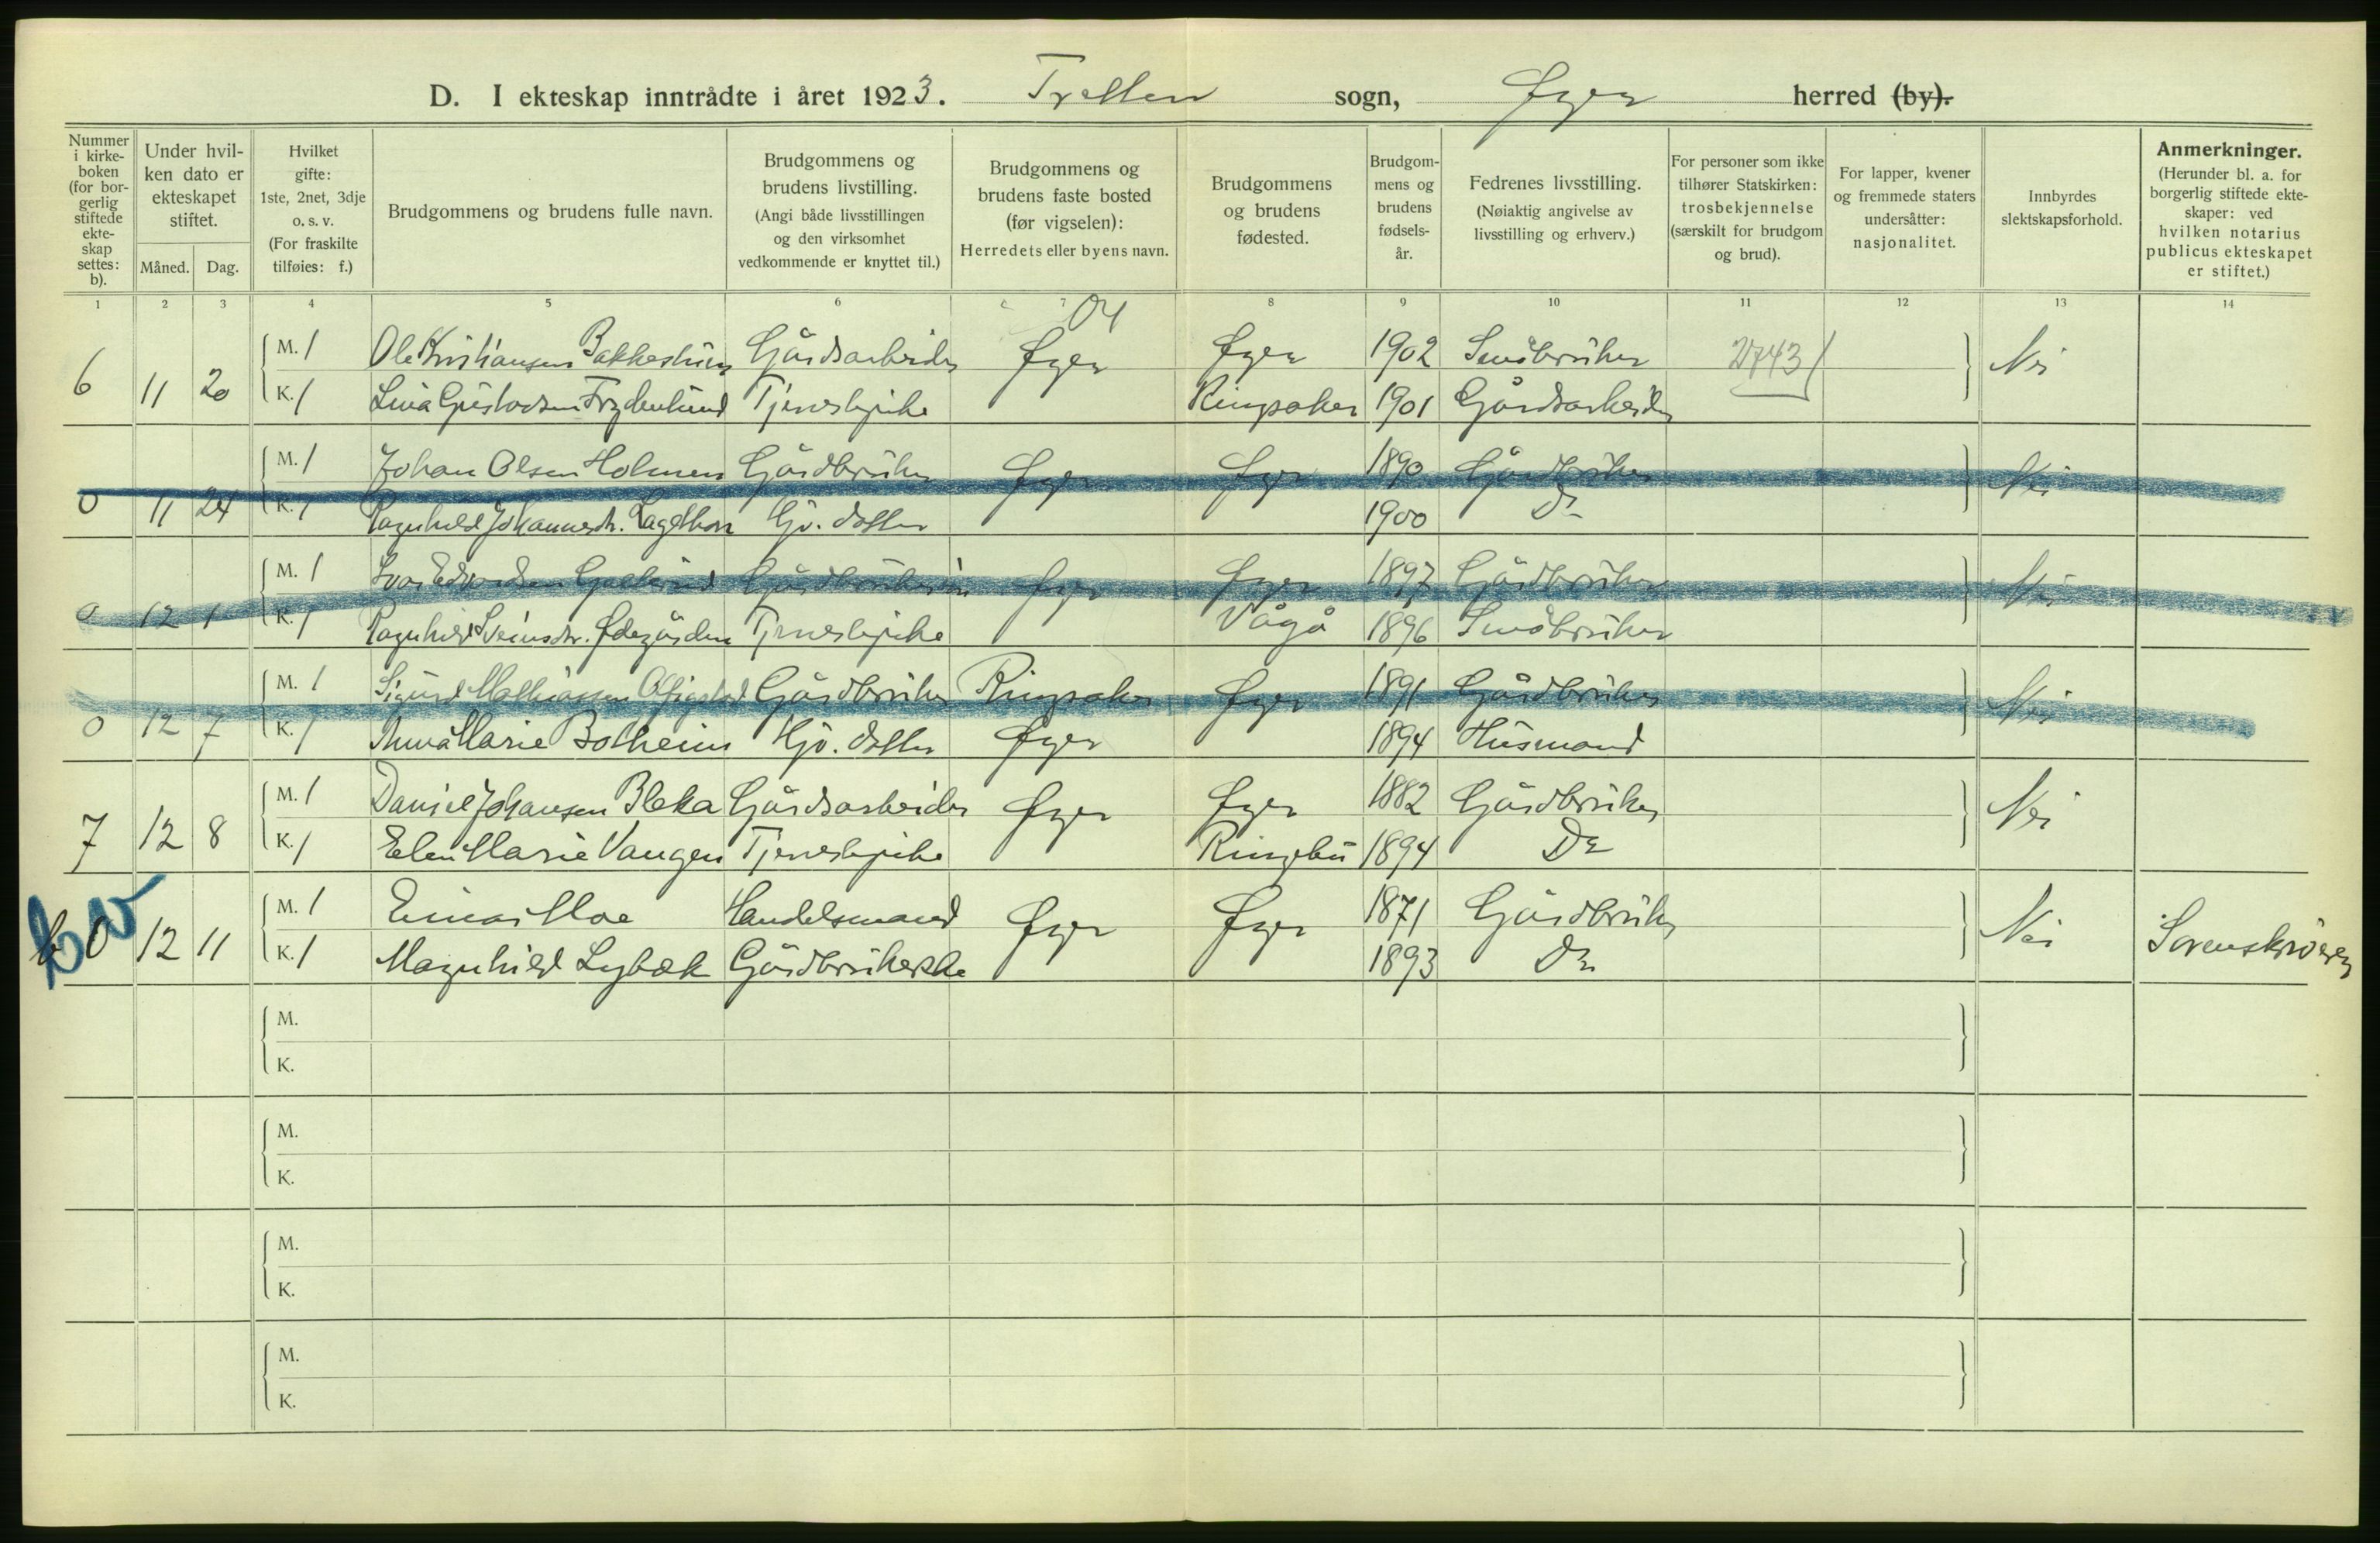 D. I ekteskap inntrådte i året 1923. Tretten sogn, Øyer herred (by).
Nummer i kirkeboken (for borgerlig stiftede ekteskap settes: b).
Under hvilken dato er ekteskapet stiftet.
Måned. Dag.
Hvilket gifte: 1ste, 2net, 3dje o. s. v. (For fraskilte tilføies: f.)
Brudgommens og brudens fulle navn.
Brudgommens og brudens livstilling. (Angi både livsstillingen og den virksomhet vedkommende er knyttet til.)
Brudgommens og brudens faste bosted (før vigselen): Herredets eller byens navn.
Brudgommens og brudens fødested.
Brudgommens og brudens fødselsår.
Fedrenes livsstilling. (Nøiaktig angivelse av livsstilling og erhverv.)
For personer som ikke tilhører Statskirken: trosbekjennelse (særskilt for brudgom og brud).
For lapper, kvener og fremmede staters undersåtter: nasjonalitet.
Innbyrdes slektskapsforhold.
Anmerkninger. (Herunder bl. a. for borgerlig stiftede ekteskaper: ved hvilken notarius publicus ekteskapet er stiftet.)
1 2 3 4 5 6 7 8 9 10 11 12 13 14
04
6 11 20 M. 1 Ole Kristiansen Bakkestuen Gårdsarbeider Øyer Øyer 1902 Småbruker 2743 Nei
K. 1 Lina Gustavsen Frydenlund Tjenestepike Ringsaker 1901 Gårdsarbeider
0 11 24 M. 1 Johan Olsen Holmen Gårdbruker Øyer Øyer 1890 Gårdbruker Nei
K. 1 Ragnhild Johannesdtr. Hj. datter 1900 Do
0 12 1 M. 1 Ivar Edvardsen Gårdbrukersøn Øyer Øyer 1897 Gårdbruker Nei
K. 1 Ragnhild Sveinsdtr. Ødegården Tjenestepike Vågå 1896 Småbruker
0 12 7 M. 1 Sigurd Mathiassen Gårdbruker Ringsaker Øyer 1891 Gårdbruker Nei
K. 1 Anna Marie Botheim Hj. datter Øyer 1894 Husmand
7 12 8 M. 1 Daniel Johansen Bleka Gårdsarbeider Øyer Øyer 1882 Gårdbruker Nei
K. 1 Elen Marie Vangen Tjenestepike Ringebu 1894 Do
b 0 12 11 M. 1 Einar Moe Handelsmand Øyer Øyer 1871 Gårdbruker Nei Sorenskriveren
K. 1 Magnhild Lybæk Gårdbrukerske 1893 Do
M.
K.
M.
K.
M.
K.
M.
K.